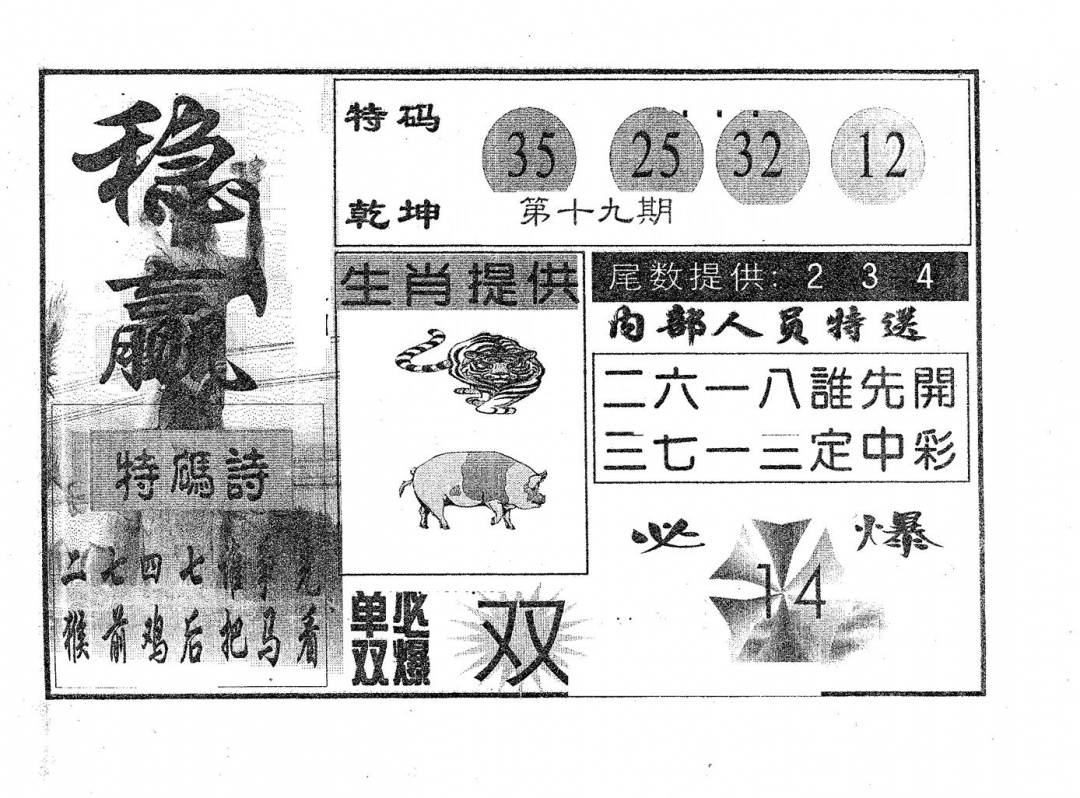 稳
赢
特碼詩
二七四七誰爭先
猴前鸡后把马看
特码
乾坤
35 25 32 12
第十九期
生肖提供
尾数提供: 2 3 4
内部人员特送
二六一八誰先開
三七一三定中彩
必 爆
14
单必
双爆
双